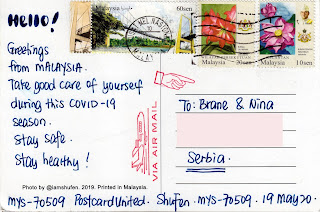 Hello!
Greetings
from MALAYSIA.
Take good care of yourself
during this COVID-19
season.
Stay safe.
Stay healthy!
Photo by @iamshufen. 2019. Printed in Malaysia.
MYS-70509 PostcardUnited. Shufen. MYS-70509. 19 May 20.
60sen
MEL NASIONAL
MALAYSIA
Malaysia 20sen
Malaysia 10sen
VIA AIR MAIL
To: Brane & Nina
Serbia.